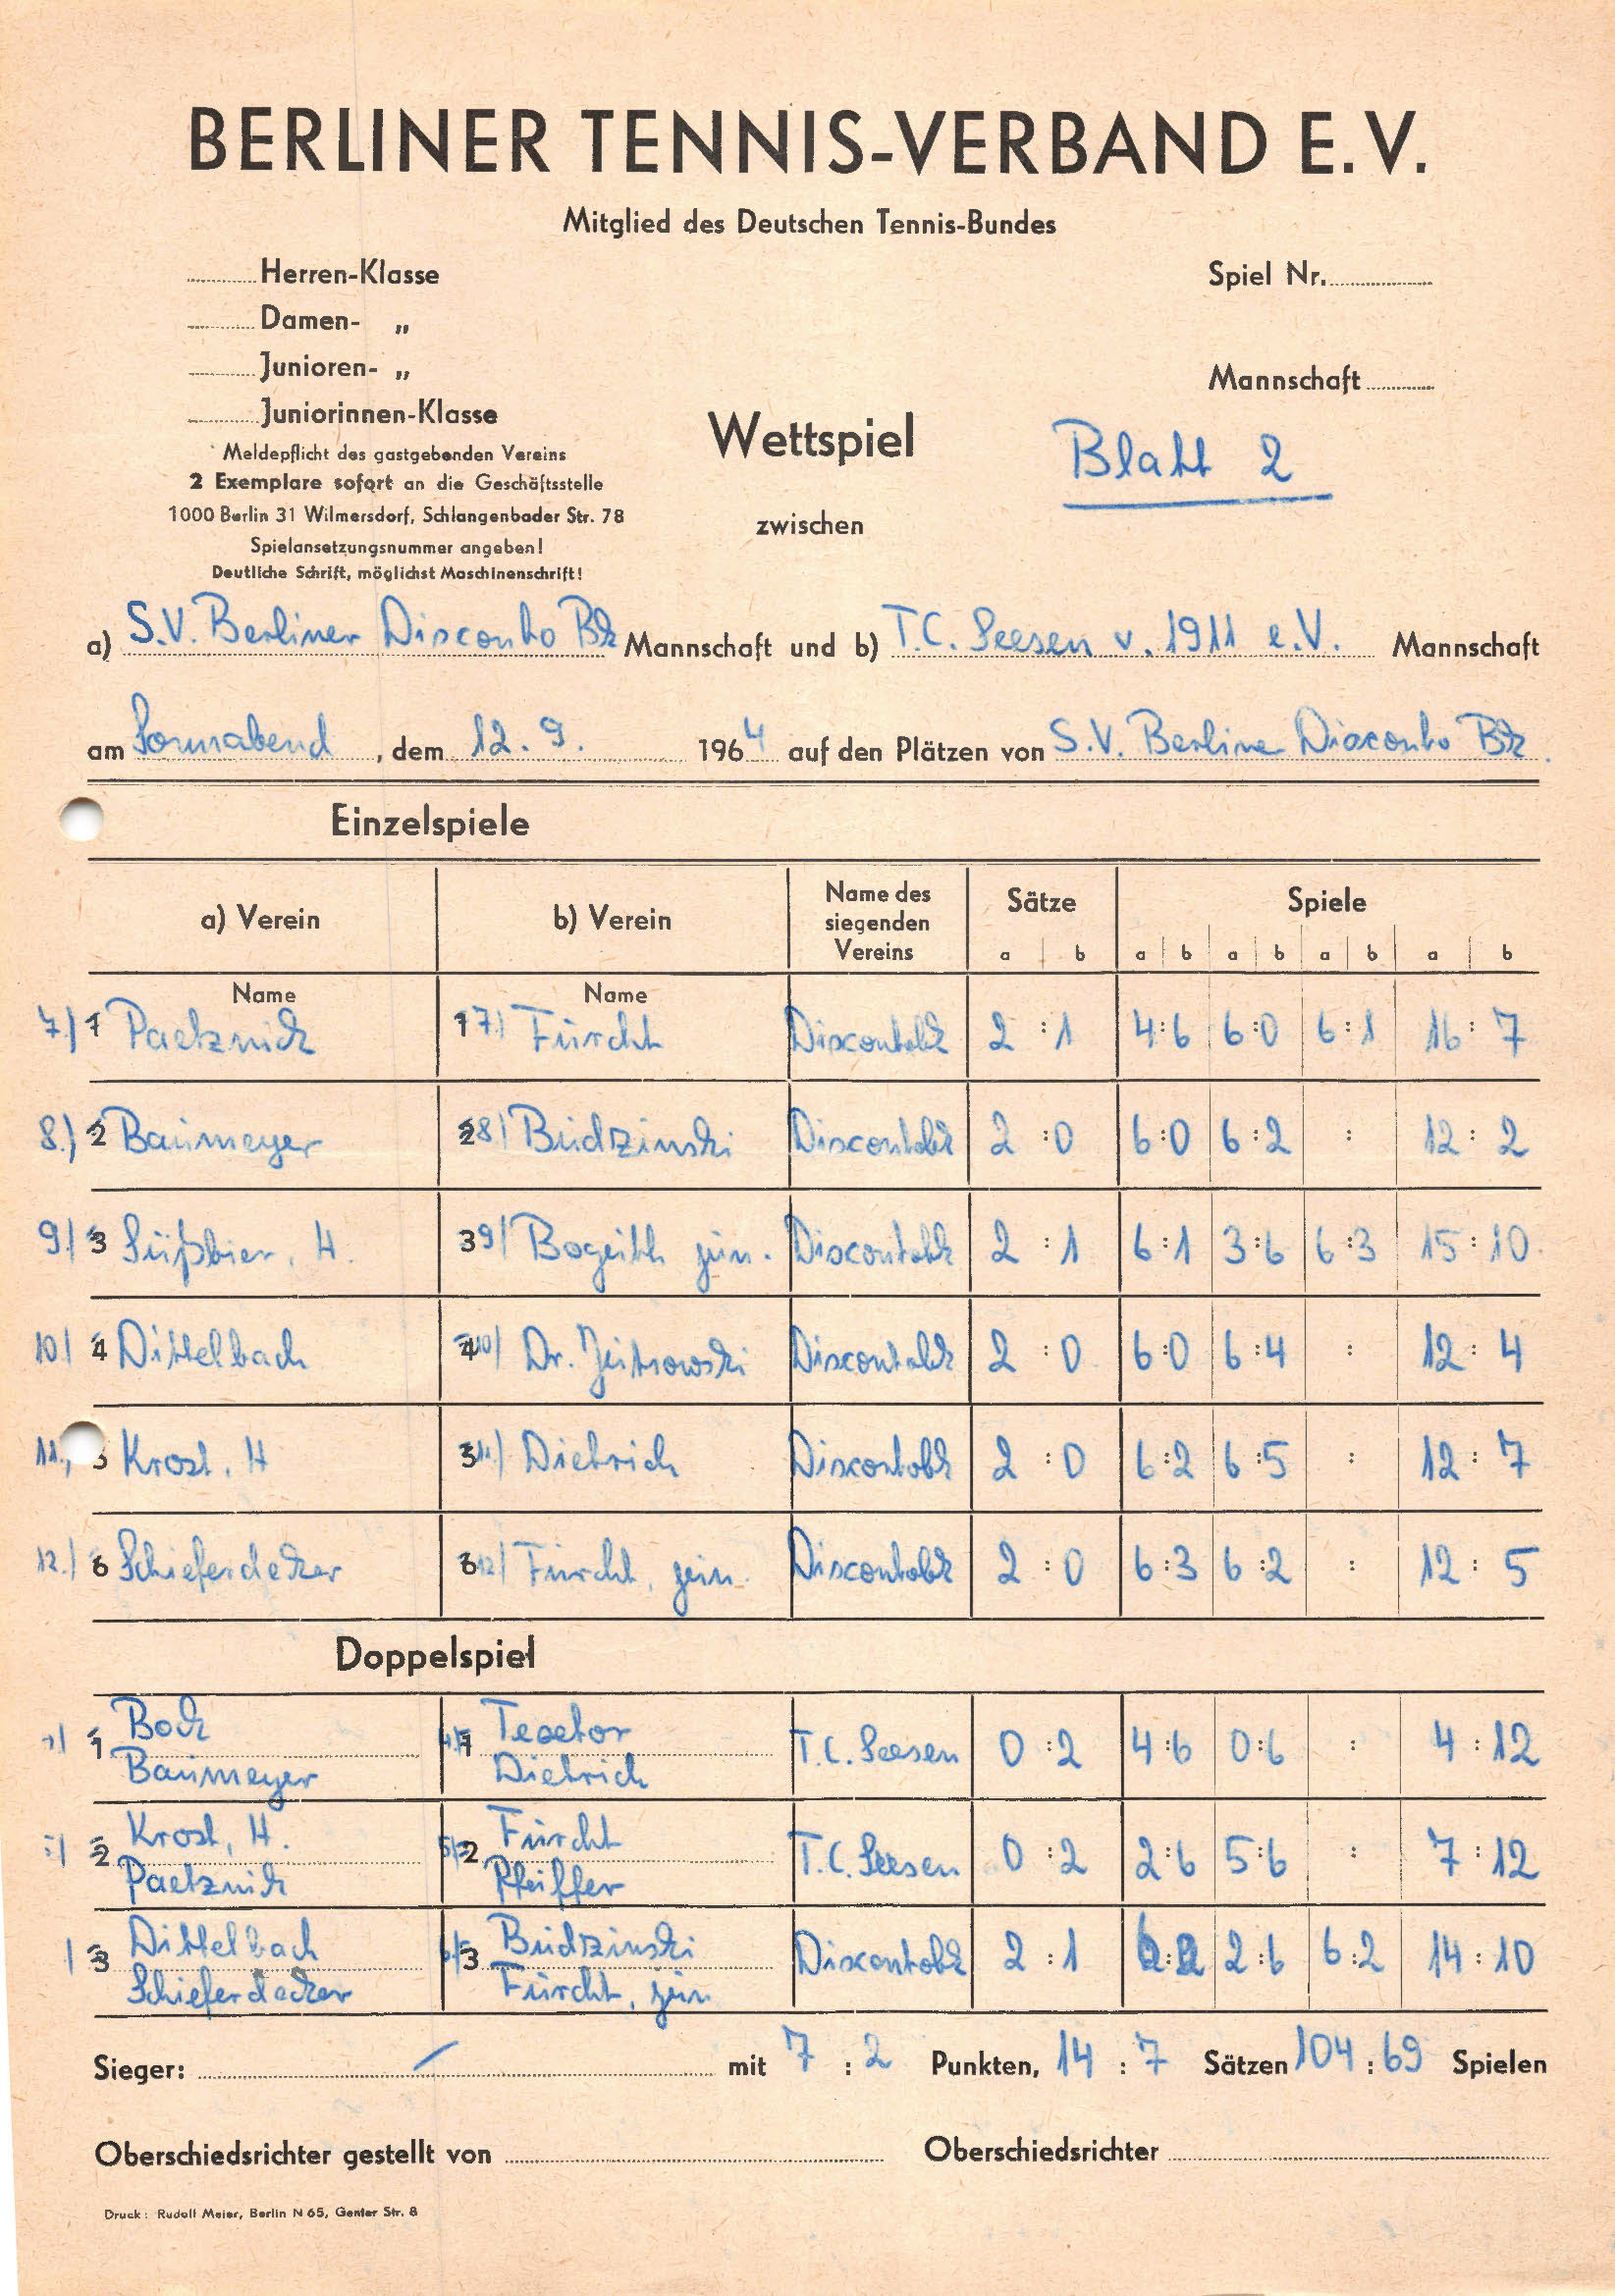 BERLINER TENNIS-VERBAND E.V.
Mitglied des Deutschen Tennis-Bundes
Herren-Klasse
Spiel Nr.
Damen- „
Junioren- „
Mannschaft
Juniorinnen-Klasse
Meldepflicht des gastgebenden Vereins
2 Exemplare sofort an die Geschäftsstelle
1000 Berlin 31 Wilmersdorf, Schlangenbader Str. 78
Spielansetzungsnummer angeben!
Deutliche Schrift, möglichst Maschinenschrift!
Wettspiel
Blatt 2
zwischen
a) S.V. Berliner Disconto Bk Mannschaft und b) T.C. Seesen v. 1911 e.V. Mannschaft
am Sonnabend, dem 12.9. 1964 auf den Plätzen von S.V. Berliner Disconto Bk
Einzelspiele
a) Verein b) Verein Name des siegenden Vereins Sätze Spiele
a b a b a b a b a b
Name Name
7.) 1 Paetznick 1 7.) Fürcht Discontobk 2 : 1 4:6 6:0 6:1 16 : 7
8.) 2 Baumeyer 2 8) Budzinski Discontobk 2 : 0 6:0 6:2 : 12 : 2
9.) 3 Süßbier, H. 3 9) Bogeith jun. Discontobk 2 : 1 6:1 3:6 6:3 15 : 10
10.) 4 Dittelbach 4 10) Dr. Discontobk 2 : 0 6:0 6:4 : 12 : 4
11.) 5 Krost, H 5 11.) Dietrich Discontobk 2 : 0 6:2 6:5 : 12 : 7
12.) 6 Schieferdecker 6 12) Fürcht, jun. Discontobk 2 : 0 6:3 6:2 : 12 : 5
Doppelspiel
1 Bock Baumeyer 4) 1 Dietrich T.C. Seesen 0 : 2 4:6 0:6 : 4 : 12
2 Krost, H. Paetznick 5) 2 Fürcht Pfeiffer T.C. Seesen 0 : 2 2:6 5:6 : 7 : 12
3 Dittelbach Schieferdecker 6) 3 Budzinski Fürcht, jun. Discontobk 2 : 1 6:2 2:6 6:2 14 : 10
Sieger: mit 7 : 2 Punkten, 14 : 7 Sätzen 104 : 69 Spielen
Oberschiedsrichter gestellt von Oberschiedsrichter
Druck: Rudolf Meier, Berlin N 65, Genter Str. 8